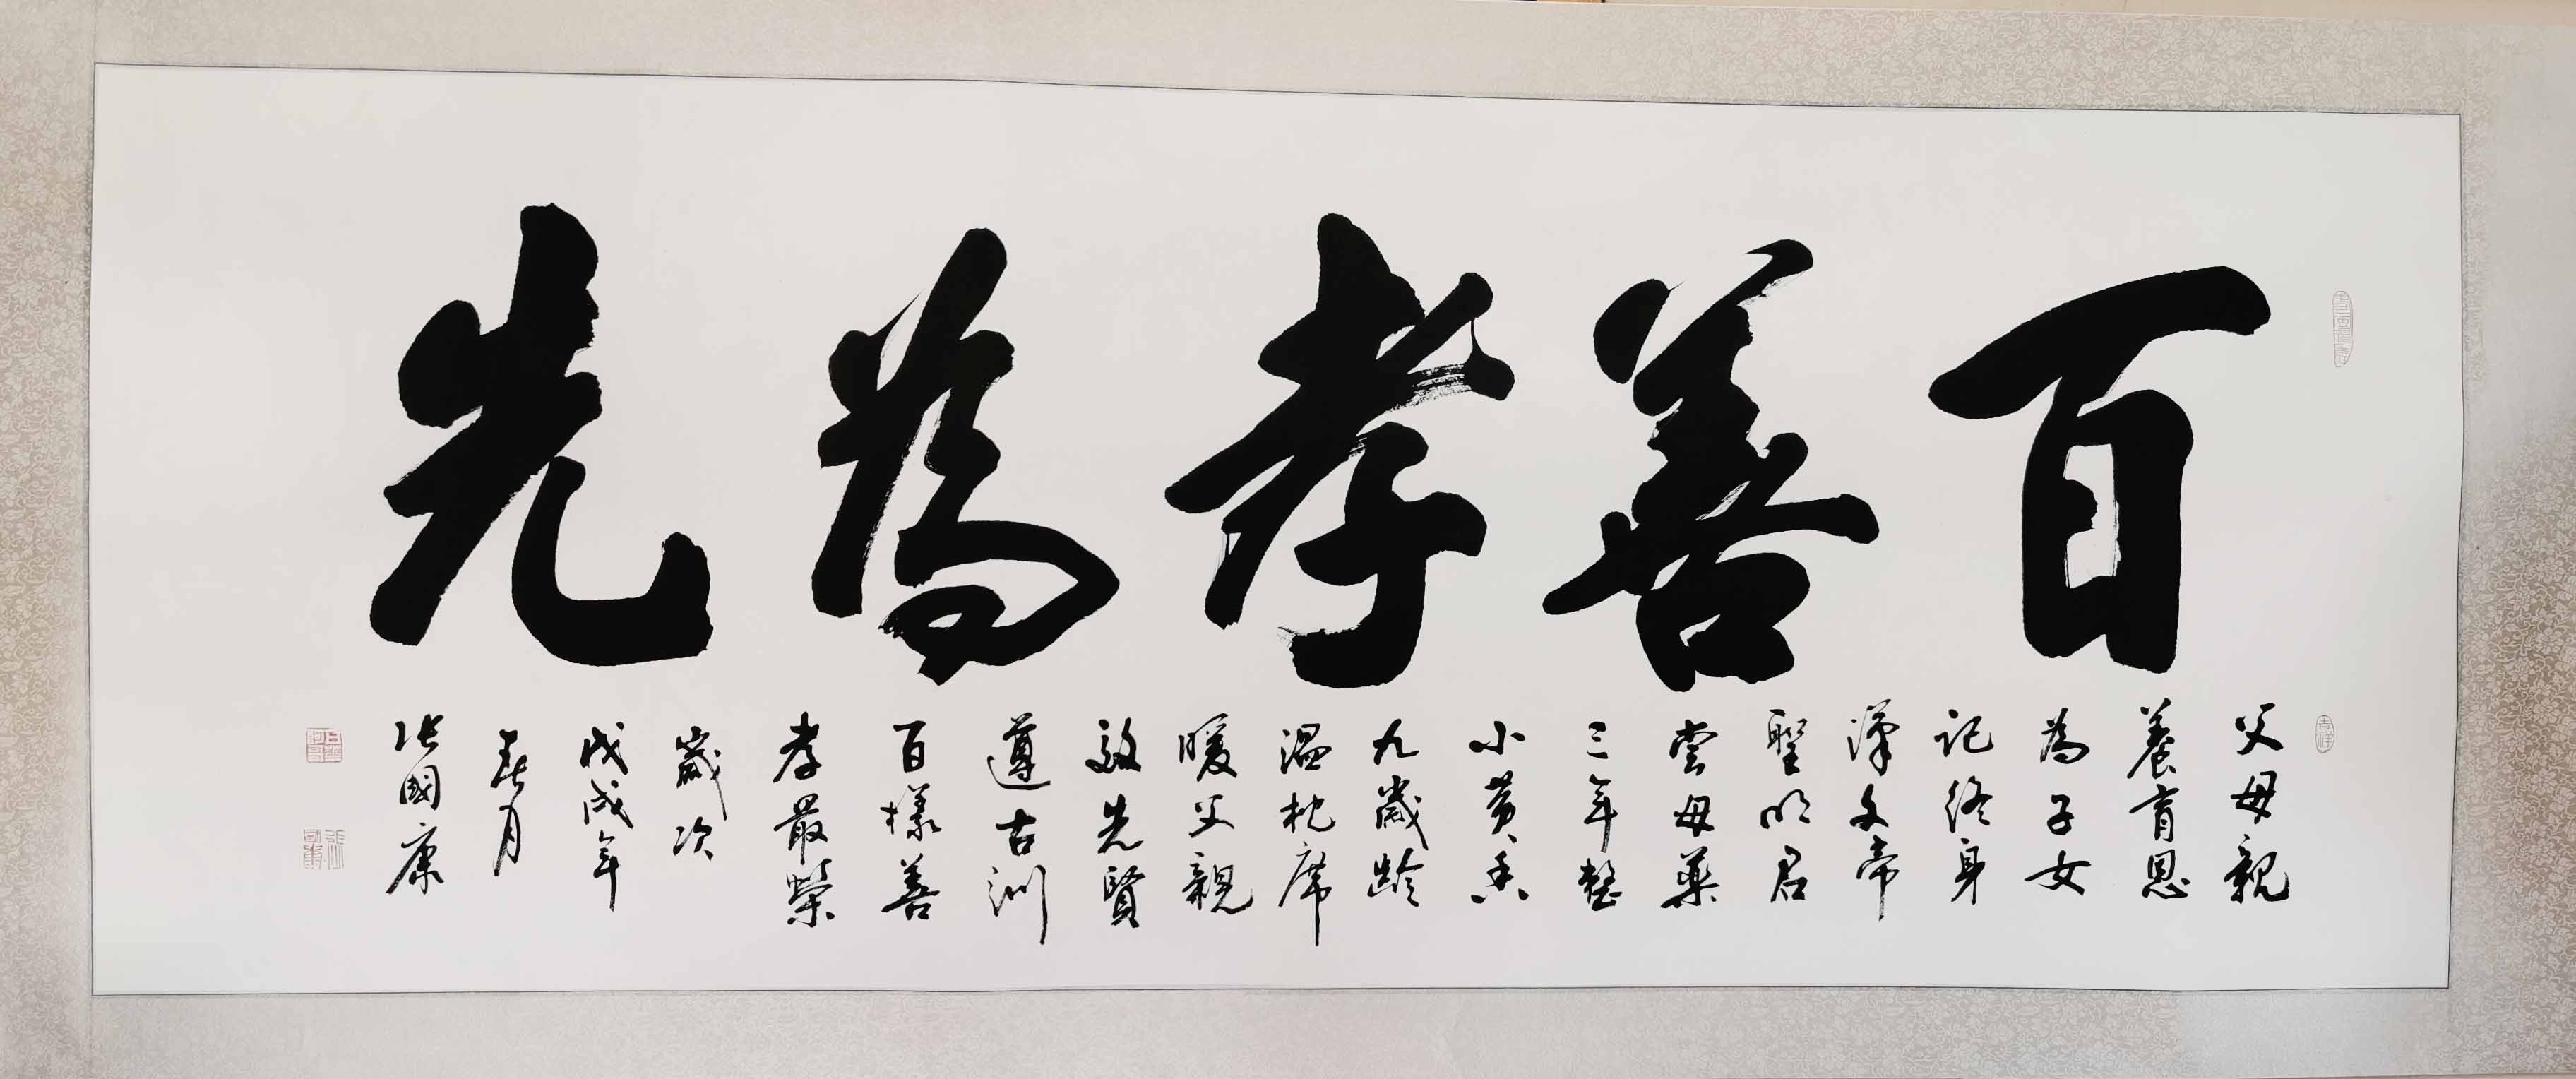 百善孝為先
父母親
養育恩
為子女
記終身
漢文帝
聖明君
嘗母藥
三年整
小黃香
九歲齡
溫枕席
暖父親
效先賢
遵古訓
百樣善
孝最榮
歲次
戊戌年
春月
張國康
吉祥
張國康